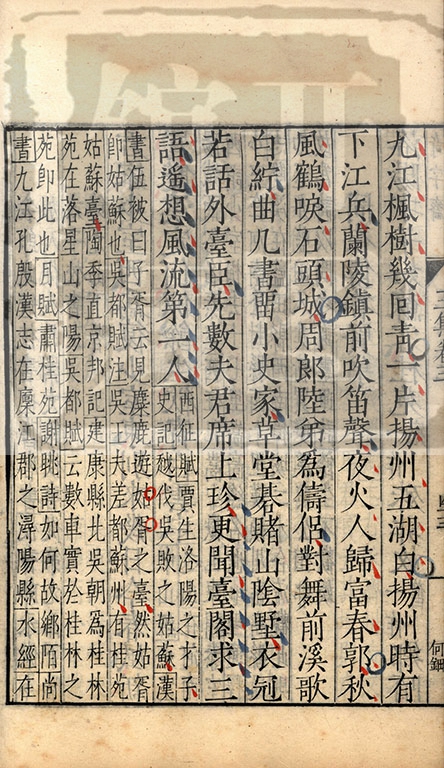 九江楓樹幾回青一片揚州五湖白揚州時有
下江兵蘭陵鎮前吹笛聲夜火人歸富春郭秋
風鶴唳石頭城周郎陸弟為儔侶對舞前溪歌
白紵曲几書留小史家草堂棊賭山陰墅衣冠
若話外臺臣先數夫君席上珍更聞臺閣求三
語遙想風流第一人
西征賦賈生洛陽之才子
史記越伐吳敗之姑蘇漢
書伍被曰子胥云見麋鹿遊姑胥之臺然姑胥
即姑蘇也吳都賦注吳王夫差都蘇州有桂苑
姑蘇臺陶季直京邦記建康縣北吳朝為桂林
苑在落星山之陽吳都賦云數車實於桂林之
苑即此也月賦肅桂苑謝朓詩如何故鄉陌尚
書九江孔殷漢志在廬江郡之潯陽縣水經在